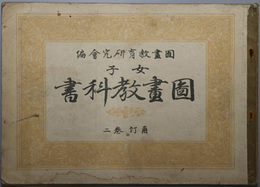 圖畫教育研究會編
女子
圖畫教科書
再訂 卷二